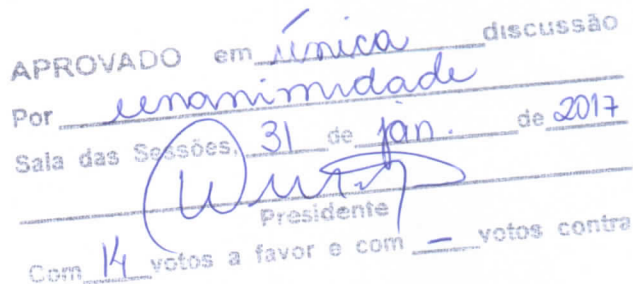 APROVADO em única discussão
Por unanimidade
Sala das Sessões, 31 de jan. de 2017
Presidente
Com 14 votos a favor e com — votos contra